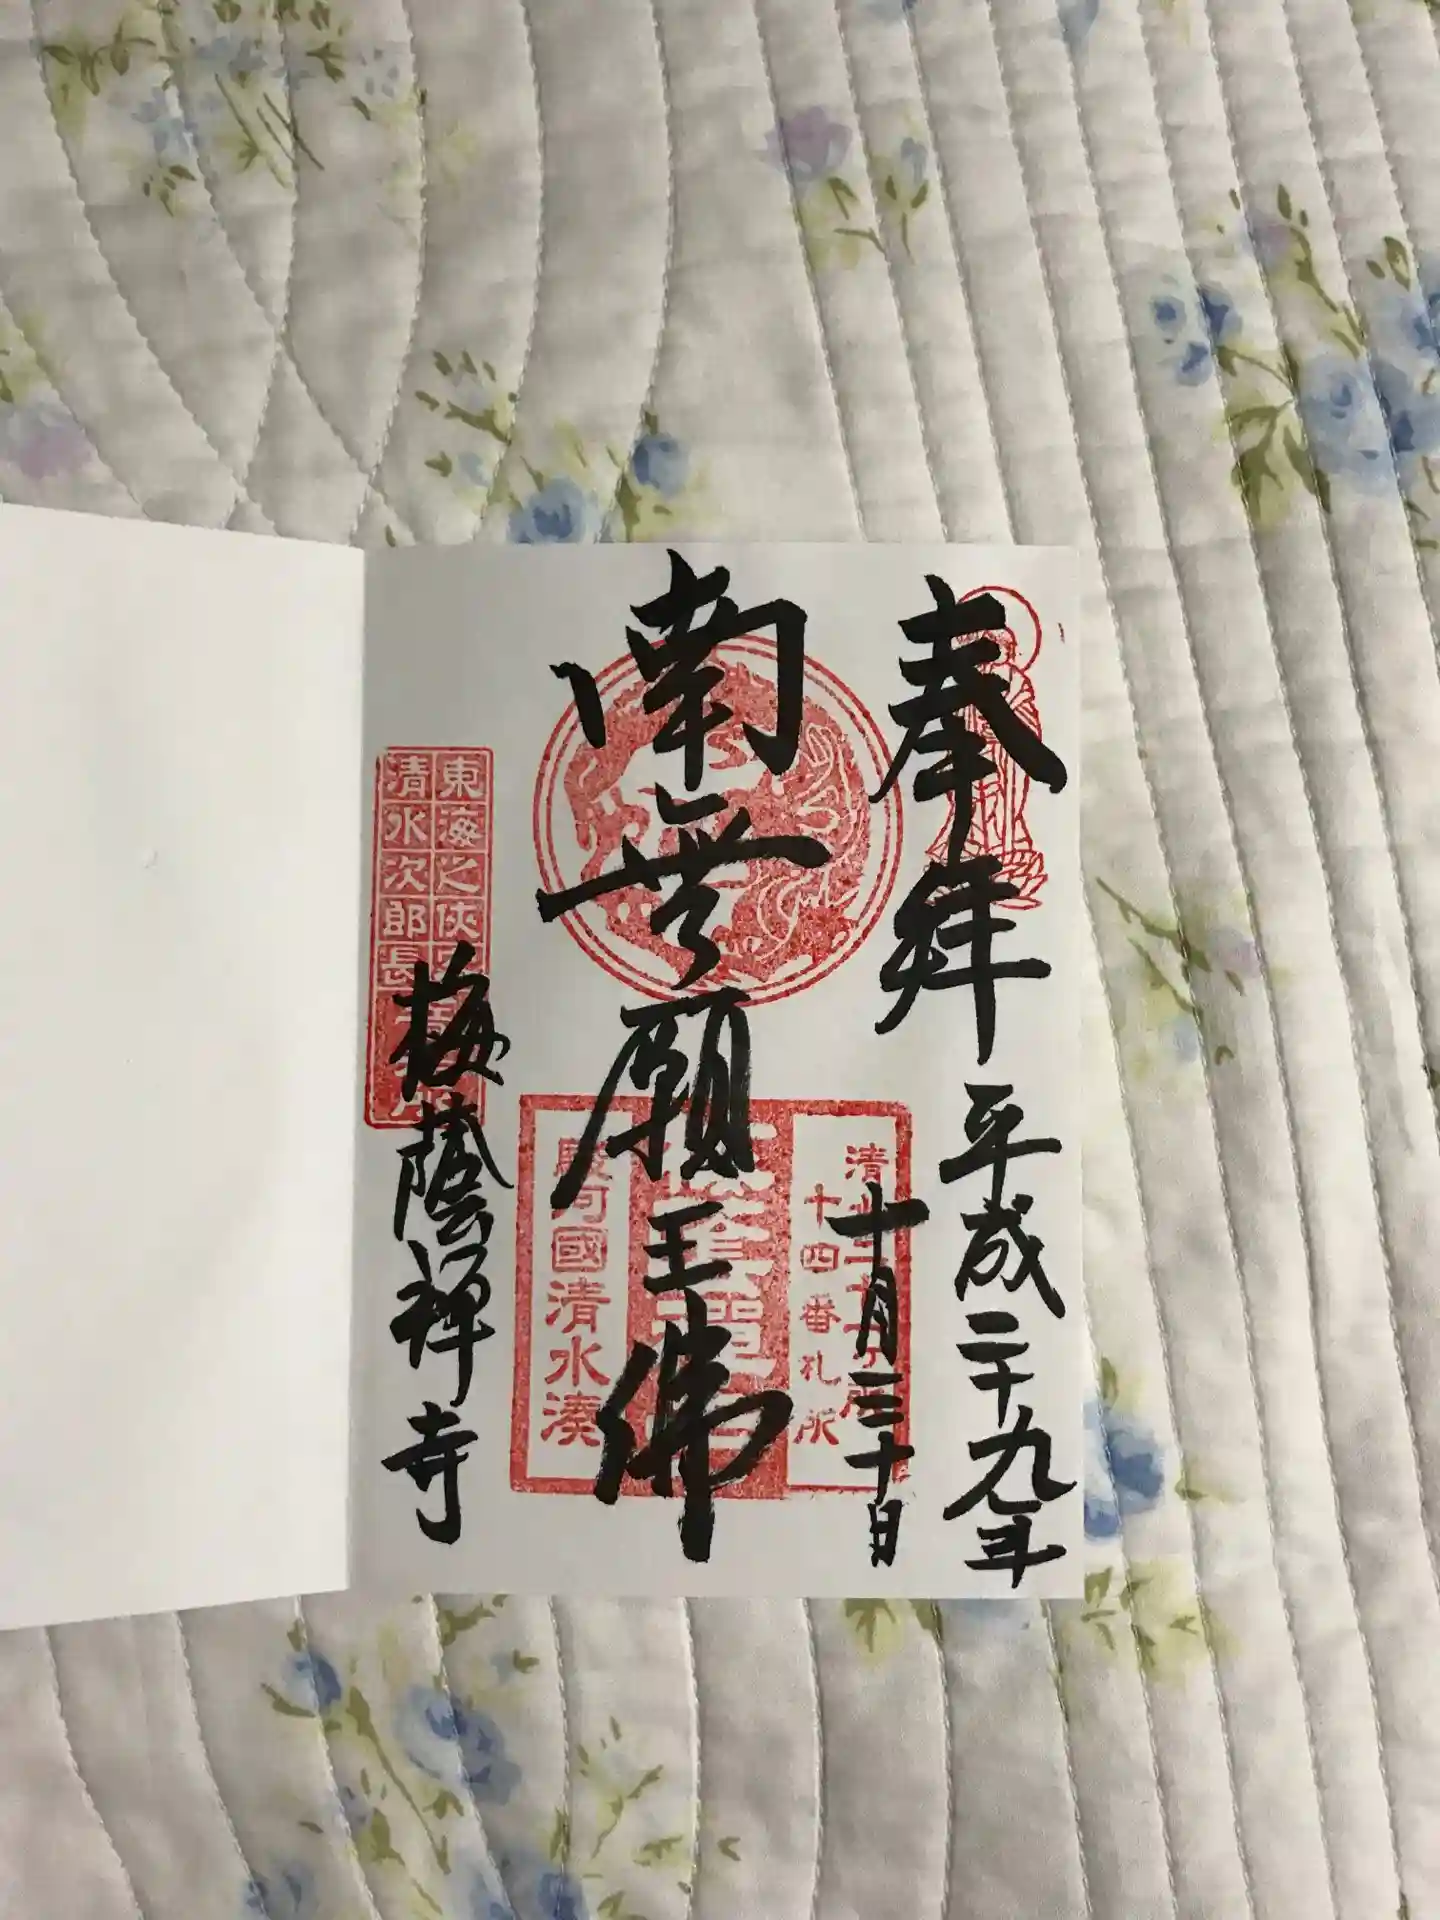 奉拝
平成二十九年
十月三十日
南無願王佛
清水
十四番札所
駿河國清水湊
東海之侠
清水次郎長
梅蔭禅寺